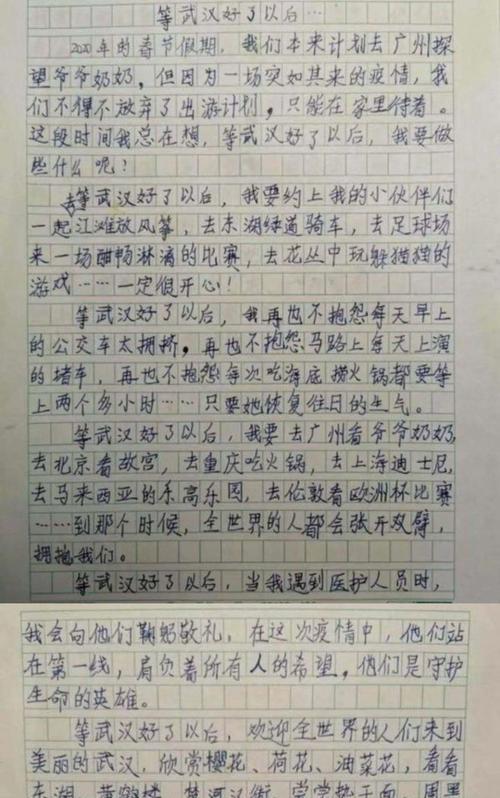 等武汉好了以后…
2020年的春节假期，我们本来计划去广州探
望爷爷奶奶，但因为一场突如其来的疫情，我
们不得不放弃了出游计划，只能在家里待着。
这段时间我总在想，等武汉好了以后，我要做
些什么呢？
等武汉好了以后，我要约上我的小伙伴们
一起江滩放风筝，去东湖绿道骑车，去足球场
来一场酣畅淋漓的比赛，去花丛中玩躲猫猫的
游戏……一定很开心！
等武汉好了以后，我再也不抱怨每天早上
的公交车太拥挤，再也不抱怨马路上每天上演
的堵车，再也不抱怨每次吃海底捞火锅都要等
上两个多小时……只要她恢复往日的生气。
等武汉好了以后，我要去广州看爷爷奶奶，
去北京看故宫，去重庆吃火锅，去上海迪士尼，
去马来西亚的乐高乐园，去伦敦看欧洲杯比赛
……到那个时候，全世界的人都会张开双臂，
拥抱我们。
等武汉好了以后，当我遇到医护人员时，
我会向他们鞠躬敬礼，在这次疫情中，他们站
在第一线，肩负着所有人的希望。他们是守护
生命的英雄。
等武汉好了以后，欢迎全世界的人们来到
美丽的武汉，欣赏樱花、荷花、油菜花，看看
东湖、黄鹤楼、楚河汉街，尝尝热干面、周黑